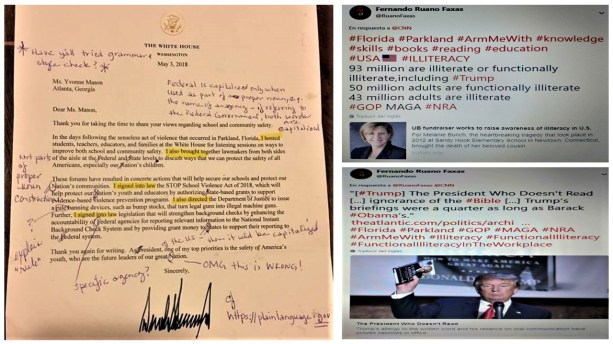 THE WHITE HOUSE
WASHINGTON
May 3, 2018
* Have y'all tried grammar &
style check? *
Ms. Yvonne Mason
Atlanta, Georgia
Federal is capitalized only when
used as part of a proper noun
Dear Ms. Mason,
Thank you for taking the time to share your views regarding school and community safety.
In the days following the senseless act of violence that occurred in Parkland, Florida, I hosted
students, teachers, educators, and families at the White House for listening sessions on ways to
improve both school and community safety. I also brought together lawmakers from both sides
of the aisle at the Federal and State levels to discuss ways that we can protect the safety of all
Americans, especially our Nation's children.
These forums have resulted in concrete actions that will help secure our schools and protect our
Nation's communities. I signed into law the STOP School Violence Act of 2018, which will
help protect our Nation's youth and educators by authorizing State-based grants to support
evidence-based violence prevention programs. I also directed the Department of Justice to issue
a rule banning devices, such as bump stocks, that turn legal guns into illegal machine guns.
Further, I signed into law legislation that will strengthen background checks by enhancing the
accountability of Federal agencies for reporting relevant information to the National Instant
Background Check System and by providing grant money to States to support their reporting to
the Federal system.
Thank you again for writing. As President, one of my top priorities is the safety of America's
youth, who are the future leaders of our great Nation.
Sincerely,
OMG this is WRONG!
specific agency?
explain
"rule"
https://plainlanguage.gov
Fernando Ruano Faxas
@RuanoFaxas
En respuesta a @CNN
#Florida #Parkland #ArmMeWith #knowledge
#skills #books #reading #education
#USA #ILLITERACY
93 million are illiterate or functionally
illiterate,including #Trump
50 million adults are functionally illiterate
43 million adults are illiterate
#GOP MAGA #NRA
Traducir del inglés
UB fundraiser works to raise awareness of illiteracy in U.S.
For Melanie Bunch, the heartbreaking tragedy that took place in 2012
at Sandy Hook Elementary School in Newtown, Connecticut,
brought the death of her beloved cousin
Fernando Ruano Faxas
@RuanoFaxas
En respuesta a @CNN
"[#Trump] The President Who Doesn't Read
[...] ignorance of the #Bible [...] Trump's
briefings were a quarter as long as Barack
#Obama's."
theatlantic.com/politics/archi ...
#Florida #Parkland #GOP #MAGA #NRA
#ArmMeWith #Illiteracy #FunctionalIlliteracy
#FunctionalIlliteracyInTheWorkplace
Traducir del inglés
The President Who Doesn't Read